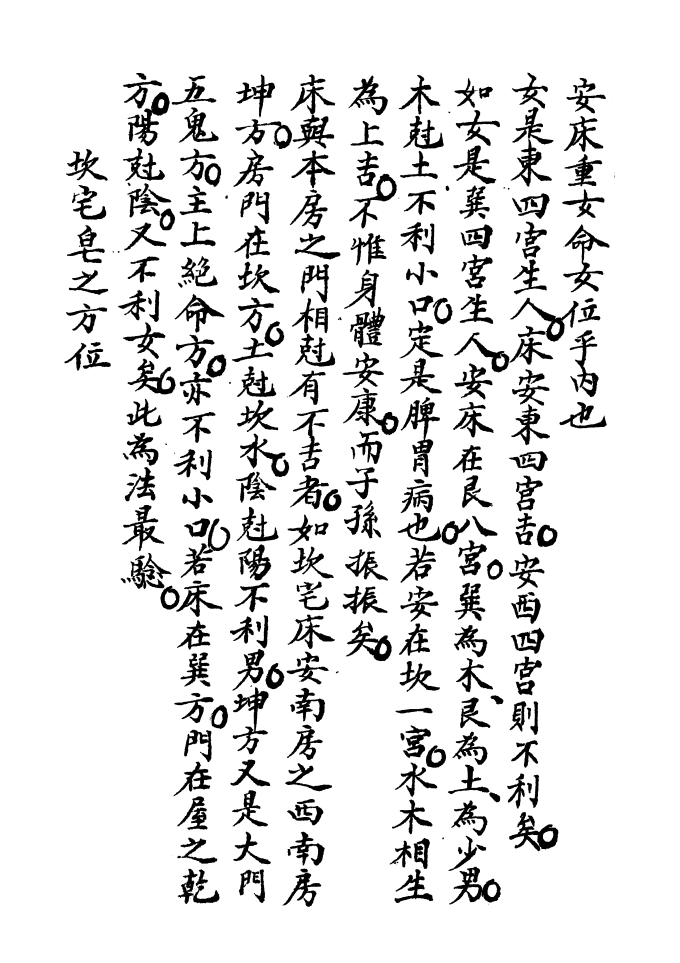 安床重女命女位乎内也
女是東四宮生人。床安東四宮吉。安西四宮則不利矣。
如女是巽四宮生人。安床在艮八宮。巽為木、艮為土、為少男。
木尅土不利小口。定是脾胃病也。若安在坎一宮。水木相生
為上吉。不惟身體安康。而子孫振振矣。
床與本房之門相尅有不吉者。如坎宅床安南房之西南房
坤方。房門在坎方。土尅坎水。陰尅陽不利男。坤方又是大門
五鬼方。主上絕命方。亦不利小口。若床在巽方。門在屋之乾
方。陽尅陰。又不利女矣。此為法最驗。
坎宅皂之方位